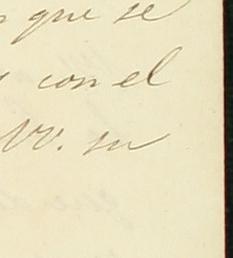 que se
con el
VV. su